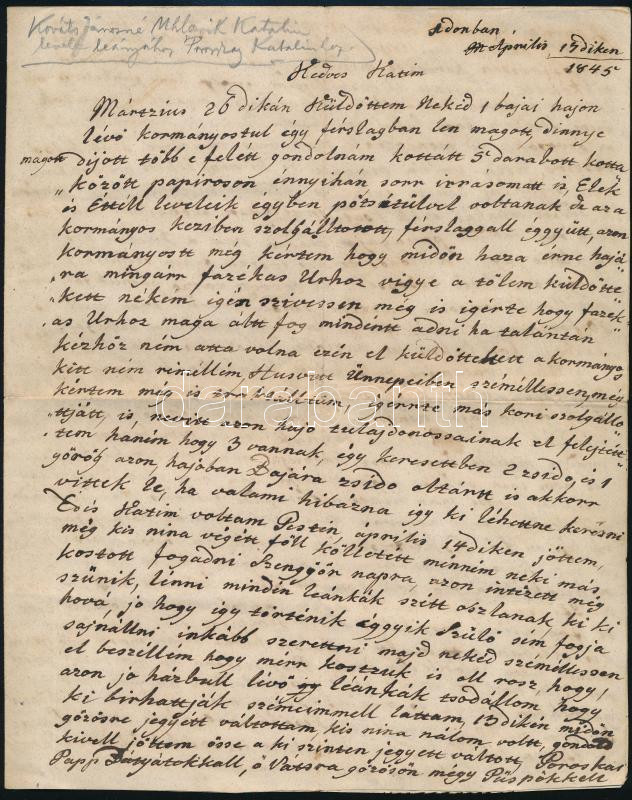 Kováts Jánosné Mhlavik Katalin
levele leányához Katalinhoz.
Adonban
Aprilis 17diken
1845
Kedves Katim
Mártzius 26 dikán Küldöttem Neked 1 bajai hajon
lévő kormanyostul égy férslagban len magott, dinnye
magott dijott több e felétt gondolnám kottátt 5 darabott kotta
között papiroson énnyihán sorr irrásomatt is, Elek
is Ettill leveleik égyben voltanak de az a
kormányos keziben szolgálltatott, férslaggall éggyütt, azon
kormányostt még kértem hogy midőn haza érne hajá
ra mingárr fazékas Urhoz vigye a tőlem küldötte
kett nékem igén szivessen még is igérte hogy fazék
as Urhoz maga ált fog mindéntt adni ha talántán
kézhöz ném atta volna ezén el küldöttekett a kormányos
kitt ném Husvétt Ünnepeiben szémélessen, még
kértem még is igérnte más kori szolgállo
ttját, is, nevitt azon hajó tulajdonossainak el felejtett
tem háném hogy 3 vannak, égy keresettben 2 zsido, és 1
görög azon, hajóban Bajára zsido oltárt is akkorr
vittek le, ha valami hibázna igy ki léhettne keresni
Édés Katim voltam Pestén április 14diken jöttem,
még kis nina végett föll kölletett menném neki más
kostott fogadni Szengyőr napra, azon intézett még
szünik, lénni mindén leánkák szétt oszlanak, ki ki
hová, jo hogy igy történik éggyik Szüló sém fogja
sajnállni inkább szerettni majd neked szémélessen
el beszéllém hogy mérr kosztuk is oll rosz, hogy,
azon jo házbull lévő léánkák tsodállom hogy
ki birhattják szémeimmell láttam, 13dikén midőn
gőzösre jegyett váltottam, kis nina nálom vollt, gondold
kivell jöttem össe a ki szintén jegyett váltott, Poroskai
Papp Battyátokkall, ő Vátsra gőzösön mégy Püspökkell
darabanth